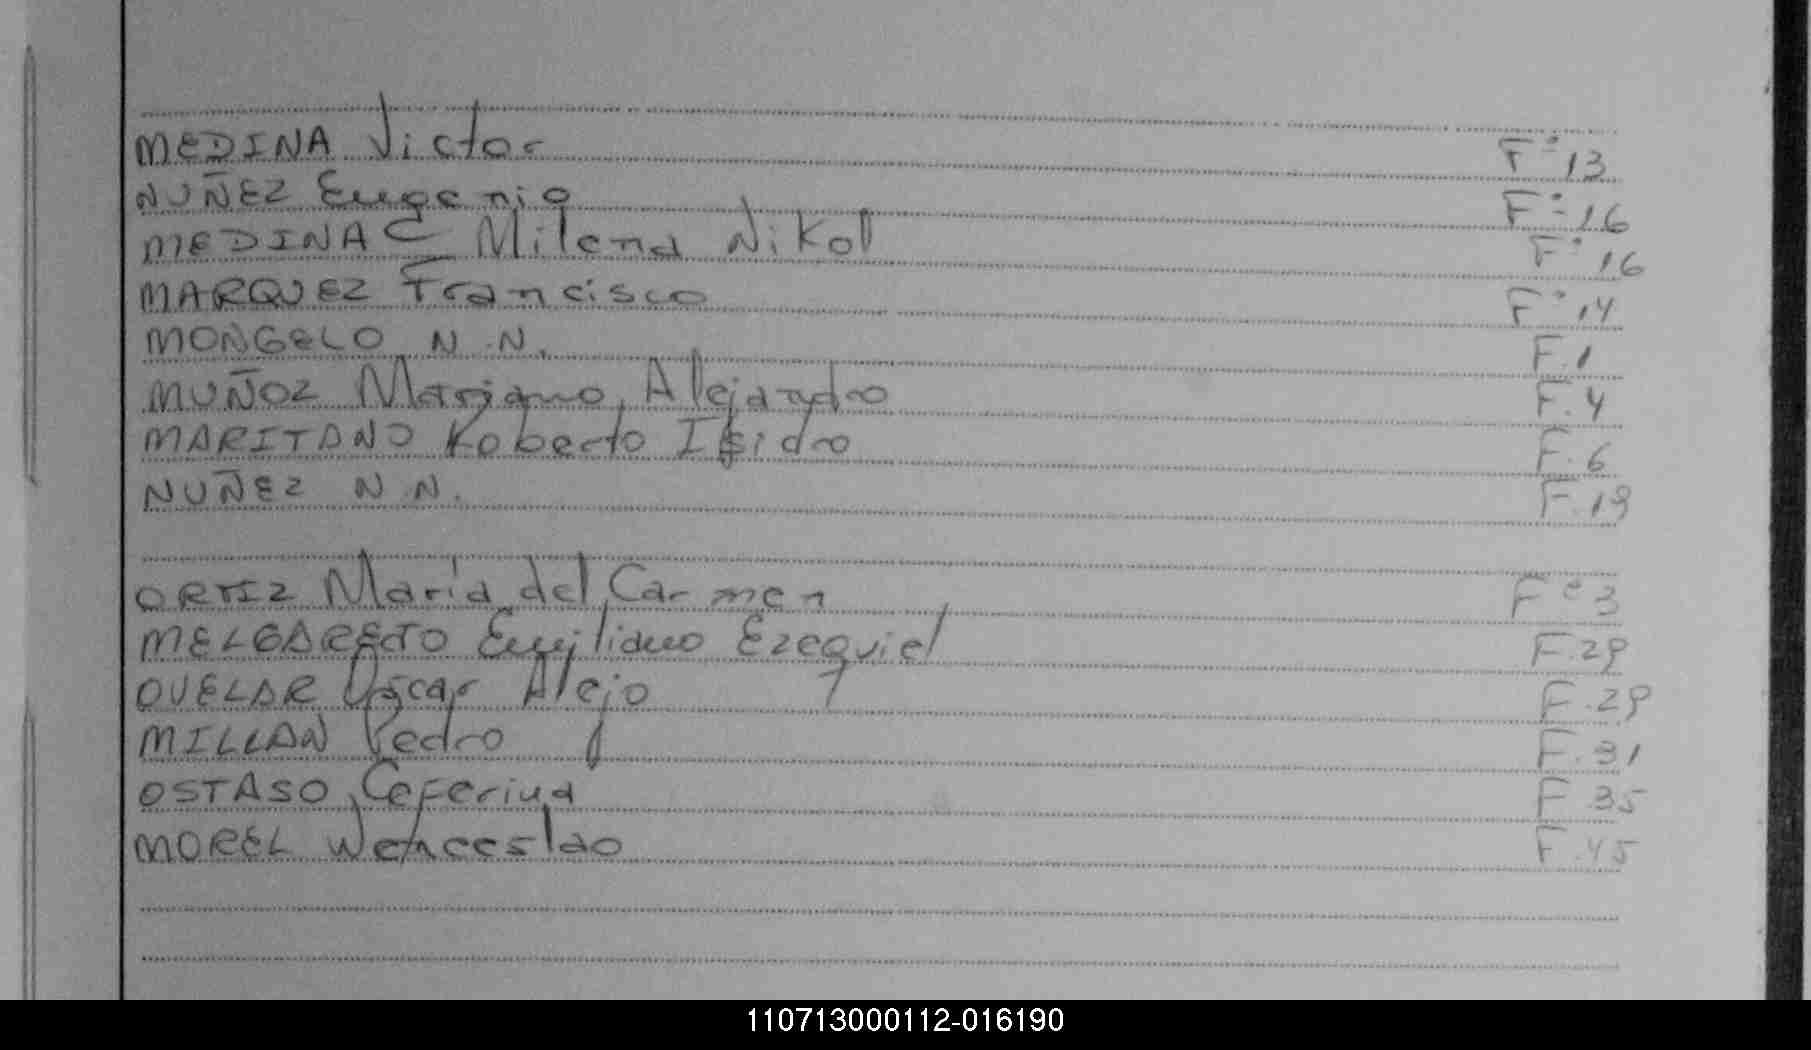 MEDINA Victor F° 13
NUÑEZ Eugenio F° 16
MEDINA Milena Nikol F° 16
MARQUEZ Francisco F° 14
MONGELO N.N. F.1
MUÑOZ Mariano Alejandro F.4
MARITANO Roberto Isidro F.6
NUÑEZ N.N. F.19
ORTIZ María del Carmen F° 3
MELGAREJO Emiliano Ezequiel F.29
OVELAR Oscar Alejo F.29
MILLAN Pedro F.31
OSTASO Ceferina F.35
MOREL Wenceslao F.45
110713000112-016190